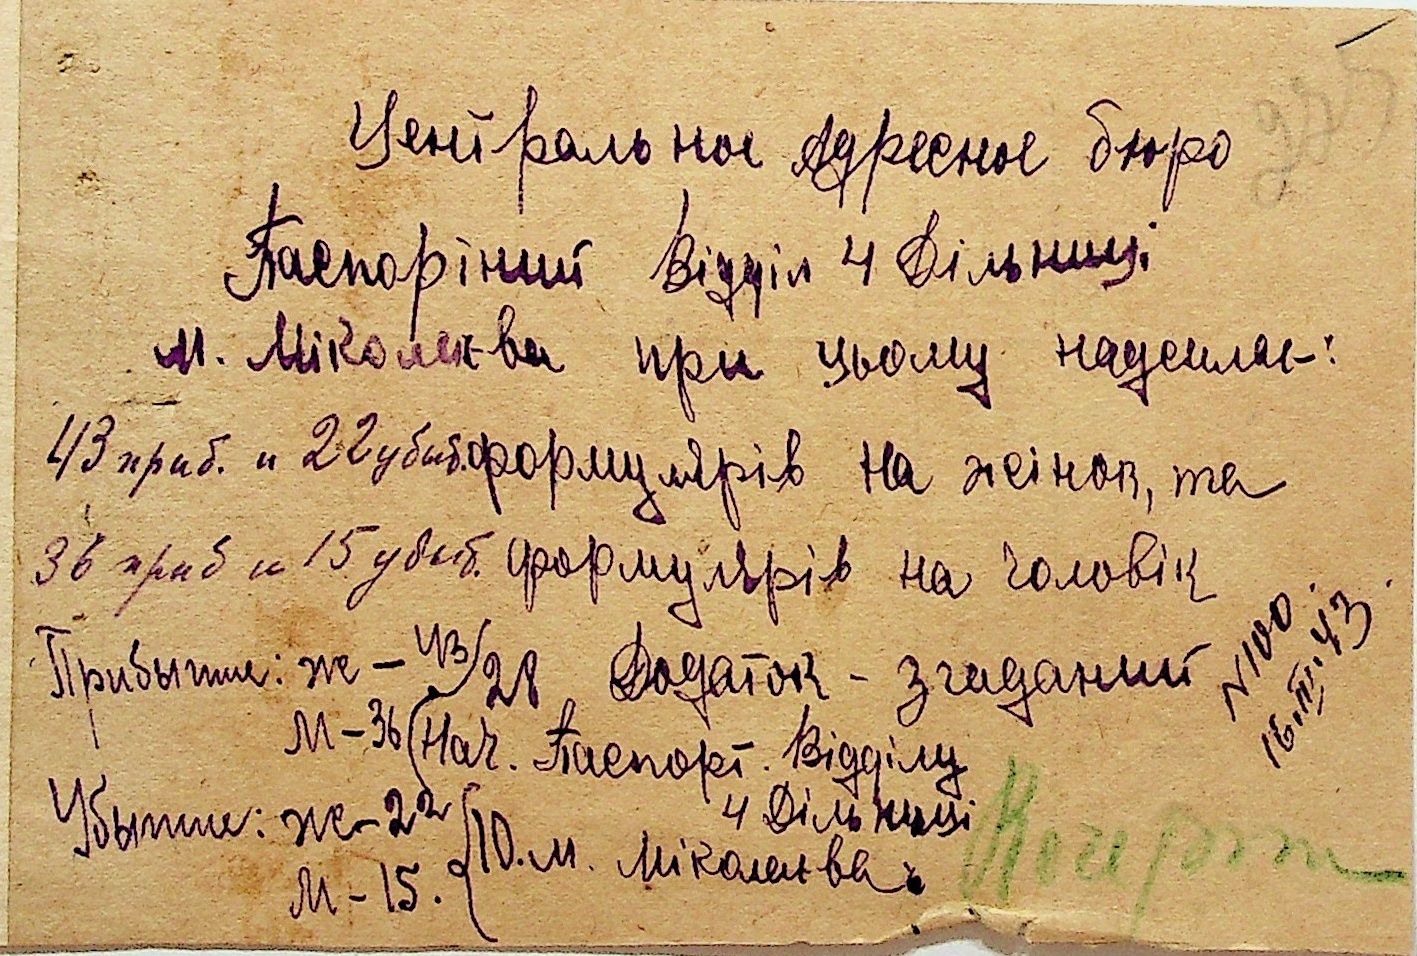 Центральное Адресное бюро
Паспортний Відділ 4 Дільниці
м. Міколаєва при цьому надсилає:
43 приб. и 22 убыб. формулярів на жінок, та
36 приб и 15 убыб. формулярів на чоловік
Прибытие: ж - 43/28 Додаток - згаданий
м - 36 Нач. Паспорт. Відділу
4 Дільниці
Убытие: ж - 22
м - 15. м. Міколаєва
N 100
16.III.43